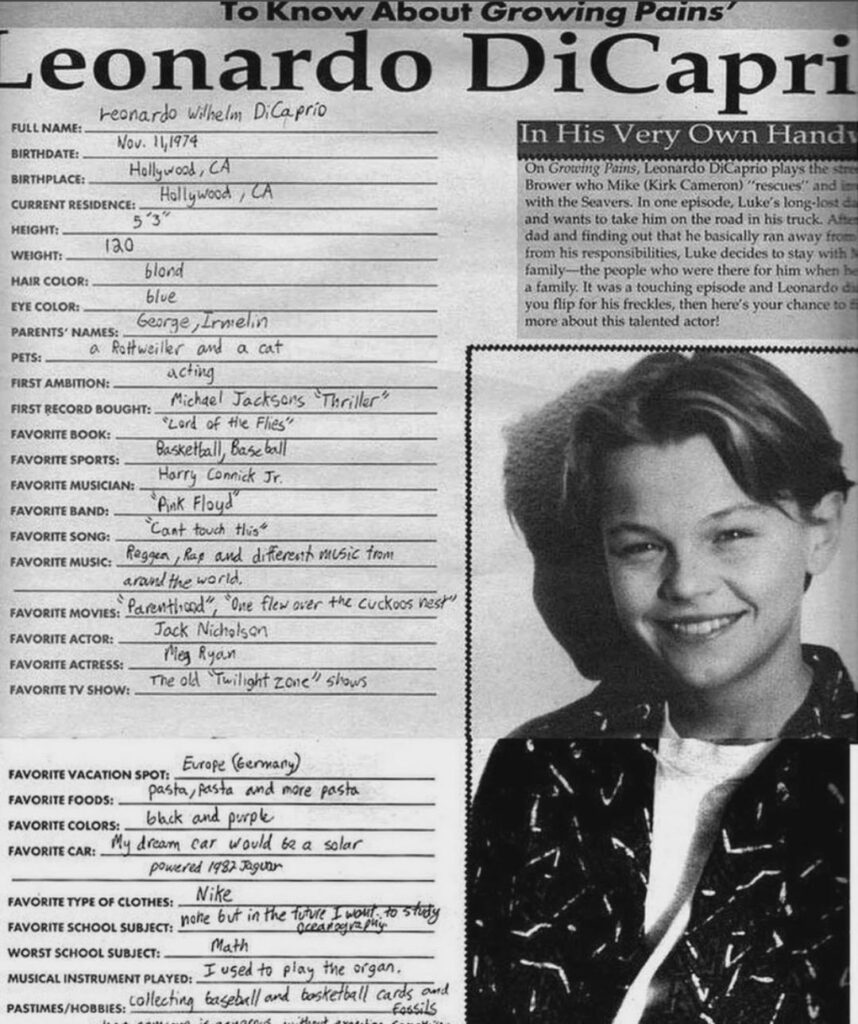 To Know About Growing Pains'
Leonardo DiCapri
FULL NAME: Leonardo Wilhelm DiCaprio
BIRTHDATE: Nov. 11, 1974
BIRTHPLACE: Hollywood, CA
CURRENT RESIDENCE: Hollywood, CA
HEIGHT: 5'3"
WEIGHT: 120
HAIR COLOR: blond
EYE COLOR: blue
PARENTS' NAMES: George, Irmelin
PETS: a Rottweiller and a cat
FIRST AMBITION: acting
FIRST RECORD BOUGHT: Michael Jacksons "Thriller"
FAVORITE BOOK: "Lord of the Flies"
FAVORITE SPORTS: Basketball, Baseball
FAVORITE MUSICIAN: Harry Connick Jr.
FAVORITE BAND: "Pink Floyd"
FAVORITE SONG: "Cant touch this"
FAVORITE MUSIC: Reggea, Rap and different music from
around the world.
FAVORITE MOVIES: "Parenthood", "One flew over the cuckoos nest"
FAVORITE ACTOR: Jack Nicholson
FAVORITE ACTRESS: Meg Ryan
FAVORITE TV SHOW: The old "Twilight zone" shows
FAVORITE VACATION SPOT: Europe (Germany)
FAVORITE FOODS: pasta, pasta and more pasta
FAVORITE COLORS: black and purple
FAVORITE CAR: My dream car would be a solar
powered 1982 Jaguar
FAVORITE TYPE OF CLOTHES: Nike
FAVORITE SCHOOL SUBJECT: none but in the future I want to study
oceanography
WORST SCHOOL SUBJECT: Math
MUSICAL INSTRUMENT PLAYED: I used to play the organ.
PASTIMES/HOBBIES: collecting baseball and basketball cards and
fossils
In His Very Own Hand
On Growing Pains, Leonardo DiCaprio plays the
Brower who Mike (Kirk Cameron) "rescues" and
with the Seavers. In one episode, Luke's long-lost
and wants to take him on the road in his truck. After
dad and finding out that he basically ran away from
from his responsibilities, Luke decides to stay with
family—the people who were there for him when he
a family. It was a touching episode and Leonardo
you flip for his freckles, then here's your chance to
more about this talented actor!